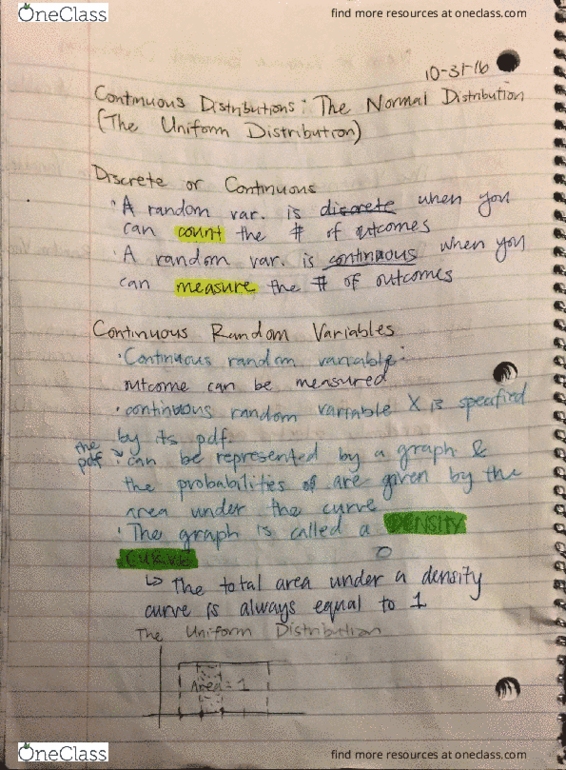 OneClass
find more resources at oneclass.com
10-31-16
Continuous Distributions: The Normal Distribution
(The Uniform Distribution)
Discrete or Continuous
· A random var. is discrete when you
can count the # of outcomes
· A random var. is continuous when you
can measure the # of outcomes
Continuous Random Variables
· Continuous random variable:
outcome can be measured
· continuous random variable X is specified
by its pdf.
the pdf
· can be represented by a graph &
the probabilities of are given by the
area under the curve
· The graph is called a DENSITY
CURVE
↳ The total area under a density
curve is always equal to 1
The Uniform Distribution
Area = 1
OneClass
find more resources at oneclass.com